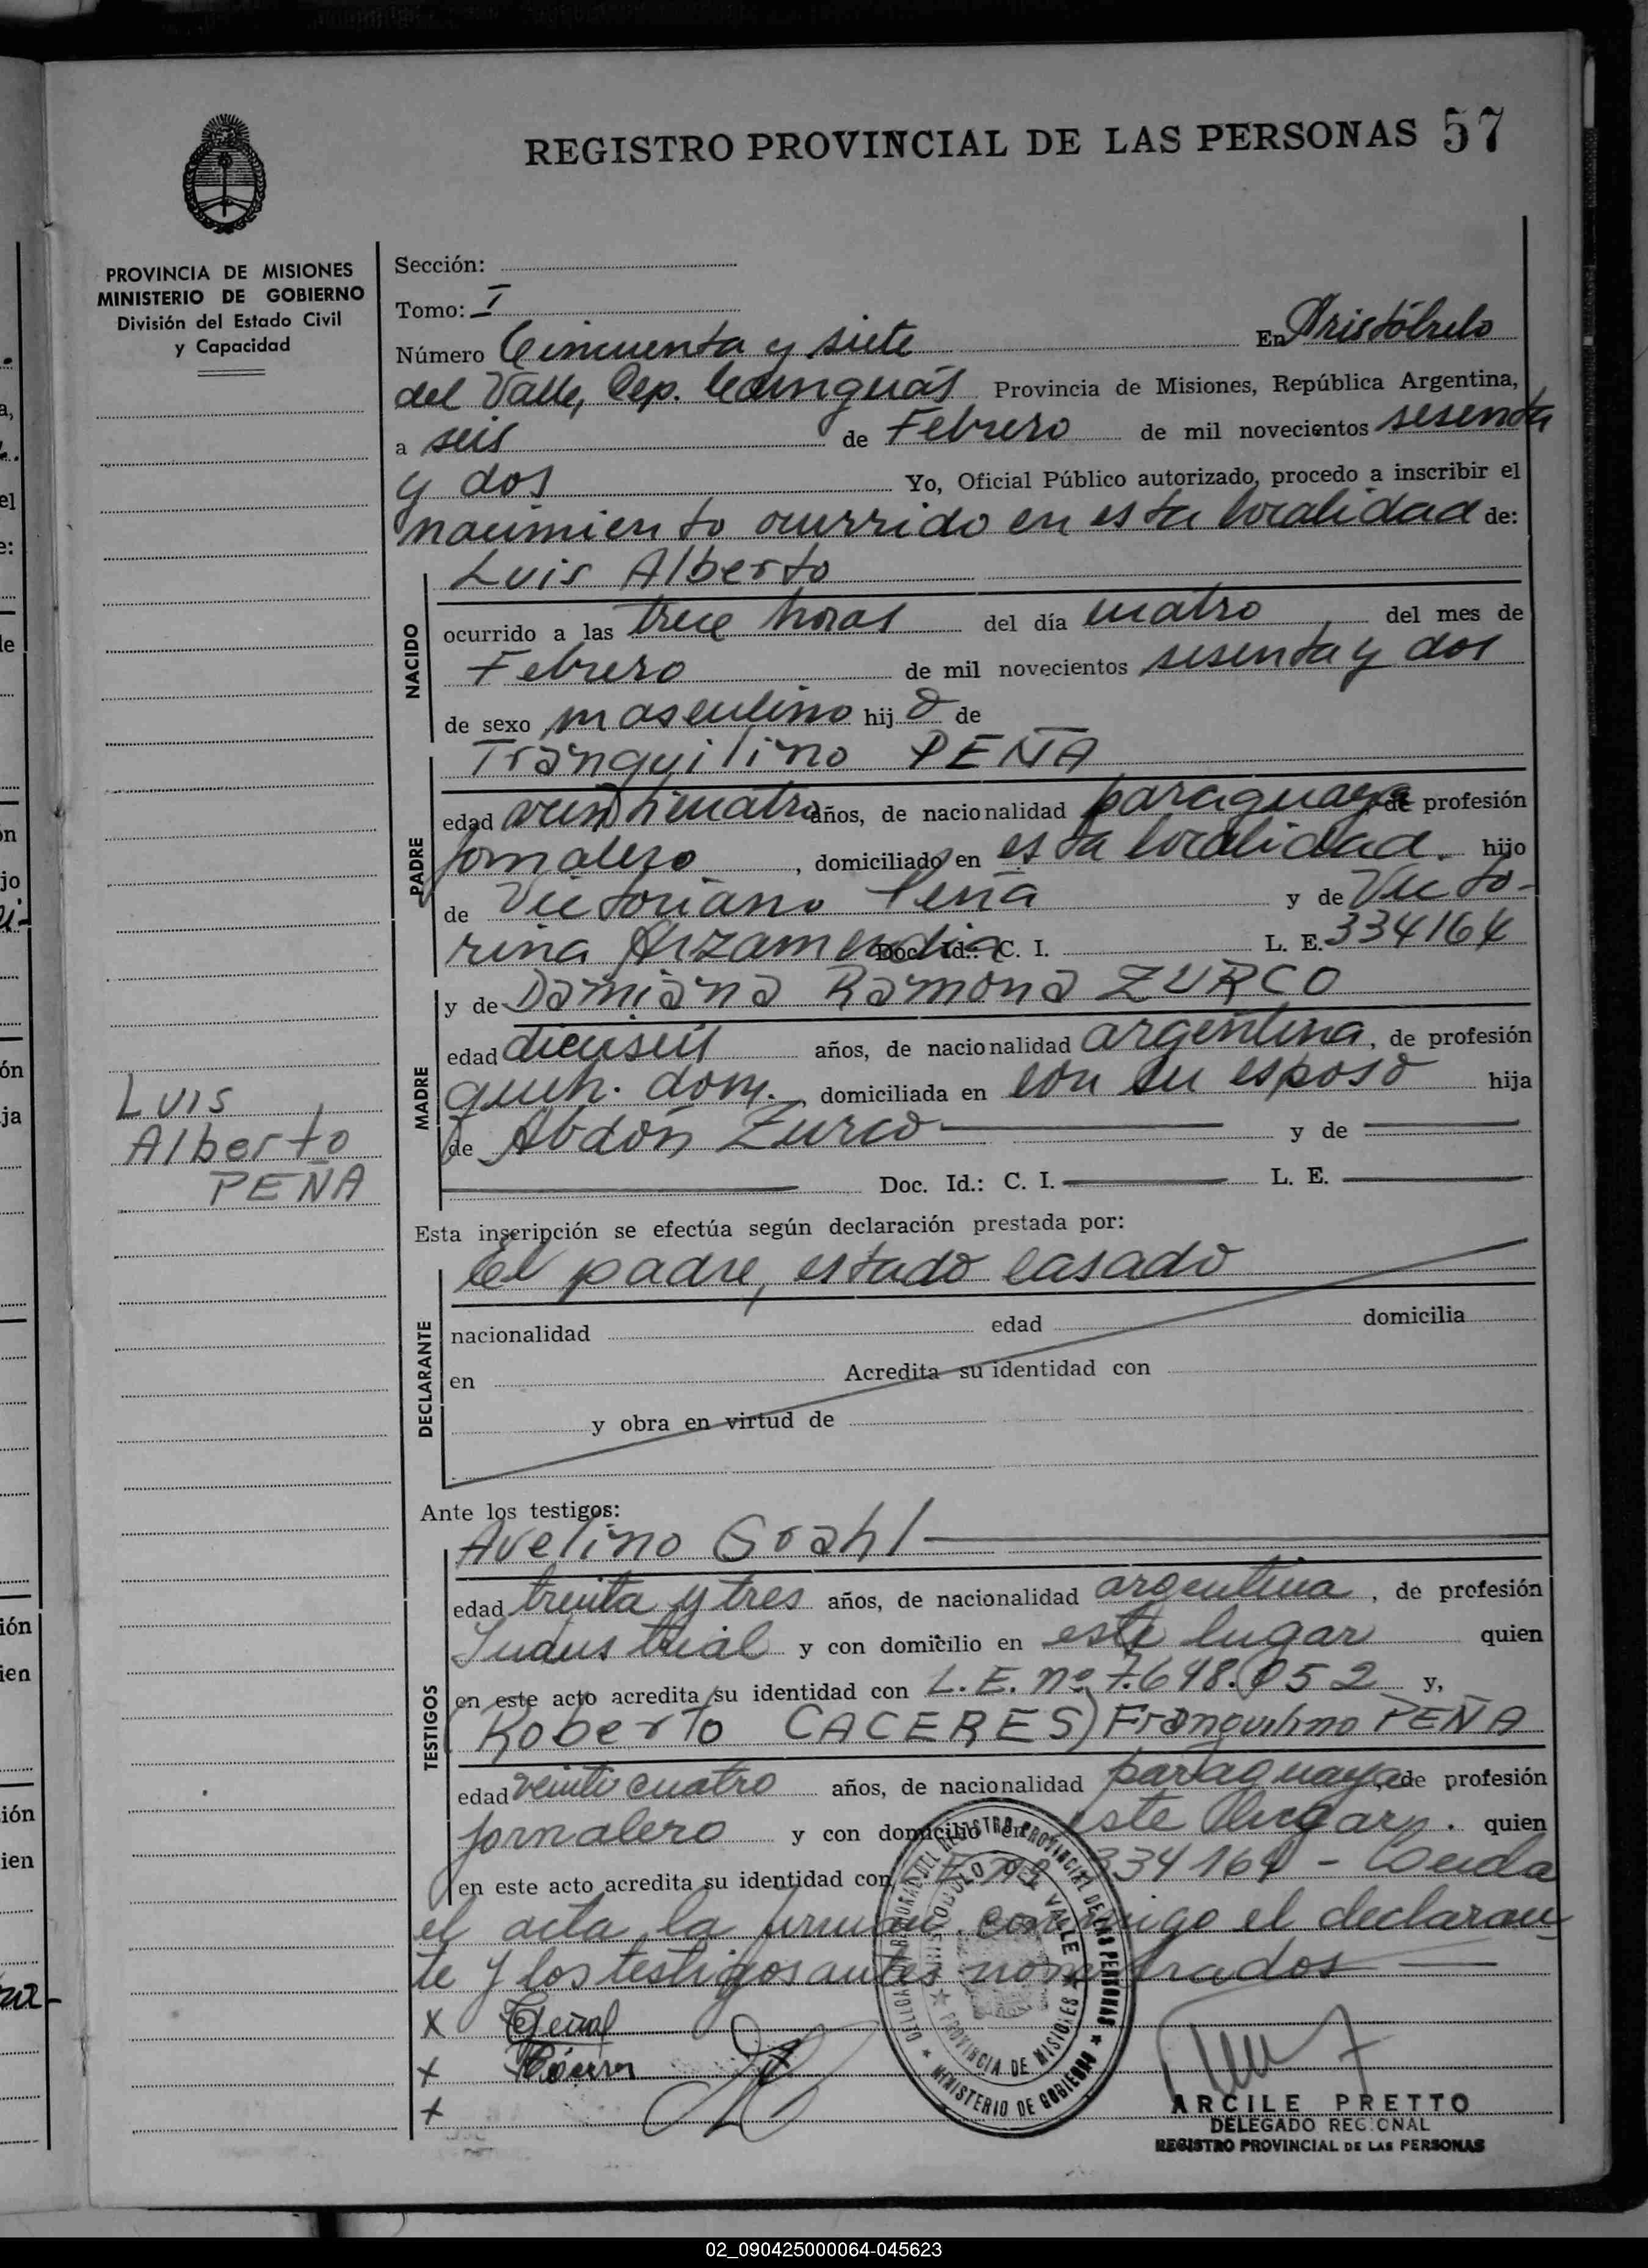 REGISTRO PROVINCIAL DE LAS PERSONAS 57
PROVINCIA DE MISIONES
MINISTERIO DE GOBIERNO
División del Estado Civil
y Capacidad
Luis
Alberto
PEÑA
Sección:
Tomo: I
Número Cincuenta y siete En Aristóbulo
del Valle, Dep. Cainguás Provincia de Misiones, República Argentina,
a seis de Febrero de mil novecientos sesenta
y dos Yo, Oficial Público autorizado, procedo a inscribir el
nacimiento ocurrido en esta localidad de:
Luis Alberto
NACIDO
ocurrido a las trece horas del día cuatro del mes de
Febrero de mil novecientos sesenta y dos
de sexo masculino hijo de
Tranquilino PEÑA
PADRE
edad veinticuatro años, de nacionalidad paraguaya de profesión
jornalero, domiciliado en esta localidad. hijo
de Victoriano Peña y de Victo-
rina Arzamendia Doc. Id.: C. I. L. E. 334164
y de Damiana Ramona ZURCO
MADRE
edad dieciseis años, de nacionalidad argentina, de profesión
queh. dom., domiciliada en con su esposo hija
de Abdón Zurco y de
Doc. Id.: C. I. L. E.
Esta inscripción se efectúa según declaración prestada por:
El padre, estado casado
DECLARANTE
nacionalidad edad domicilia
en Acredita su identidad con
y obra en virtud de
Ante los testigos:
Avelino Grahl
TESTIGOS
edad treinta y tres años, de nacionalidad argentina, de profesión
Industrial y con domicilio en este lugar quien
en este acto acredita su identidad con L.E. nº 7.648.052 y,
(Roberto CACERES) Tranquilino PEÑA
edad veinticuatro años, de nacionalidad paraguaya, de profesión
jornalero y con domicilio en este lugar. quien
en este acto acredita su identidad con 334164 - Leida
el acta la firman conmigo el declaran-
te y los testigos antes nombrados
X
X
X
DELEGACION REGIONAL DEL REGISTRO PROVINCIAL DE LAS PERSONAS
ARISTOBULO DEL VALLE
PROVINCIA DE MISIONES
MINISTERIO DE GOBIERNO
ARCILE PRETTO
DELEGADO REGIONAL
REGISTRO PROVINCIAL DE LAS PERSONAS
02_090425000064-045623